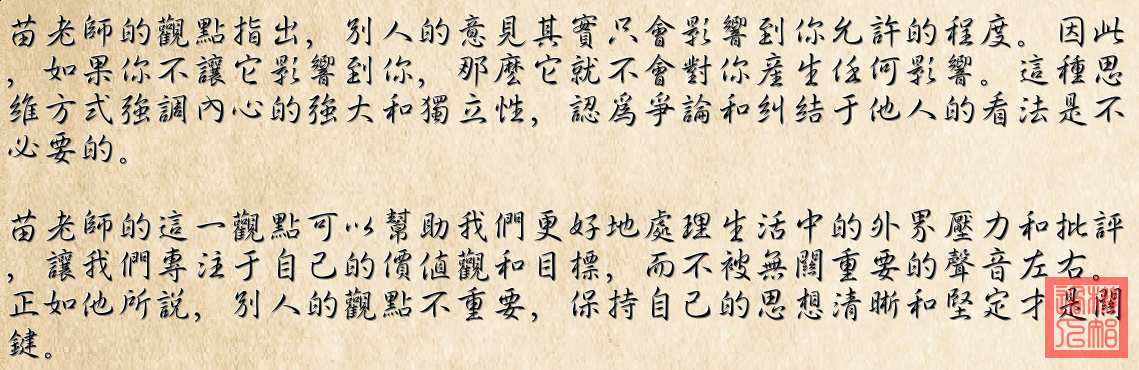 苗老師的觀點指出，別人的意見其實只會影響到你允許的程度。因此
，如果你不讓它影響到你，那麼它就不會對你産生任何影響。這種思
維方式強調內心的強大和獨立性，認爲爭論和糾结于他人的看法是不
必要的。
苗老師的這一觀點可以幫助我們更好地處理生活中的外界壓力和批評
，讓我們專注于自己的價值觀和目標，而不被無關重要的聲音左右。
正如他所説，別人的觀點不重要，保持自己的思想清晰和堅定才是關
鍵。